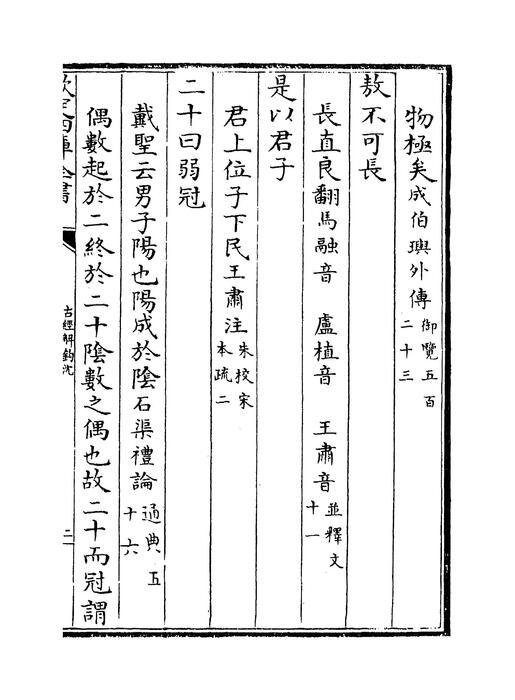 物極矣成伯璵外傳御覽五百二十三
敖不可長
長直良翻馬融音　盧植音　王肅音並釋文十一
是以君子
君上位子下民王肅注朱校宋本疏二
二十曰弱冠
戴聖云男子陽也陽成於陰石渠禮論通典五十六
偶數起於二終於二十陰數之偶也故二十而冠謂
欽定四庫全書
古經解鉤沈
二